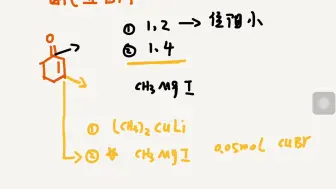 O
① 1,2 → 位阻小
② 1.4
CH3 Mg I
① (CH3)2 CuLi
② * CH3 Mg I 0.05mol CuBr